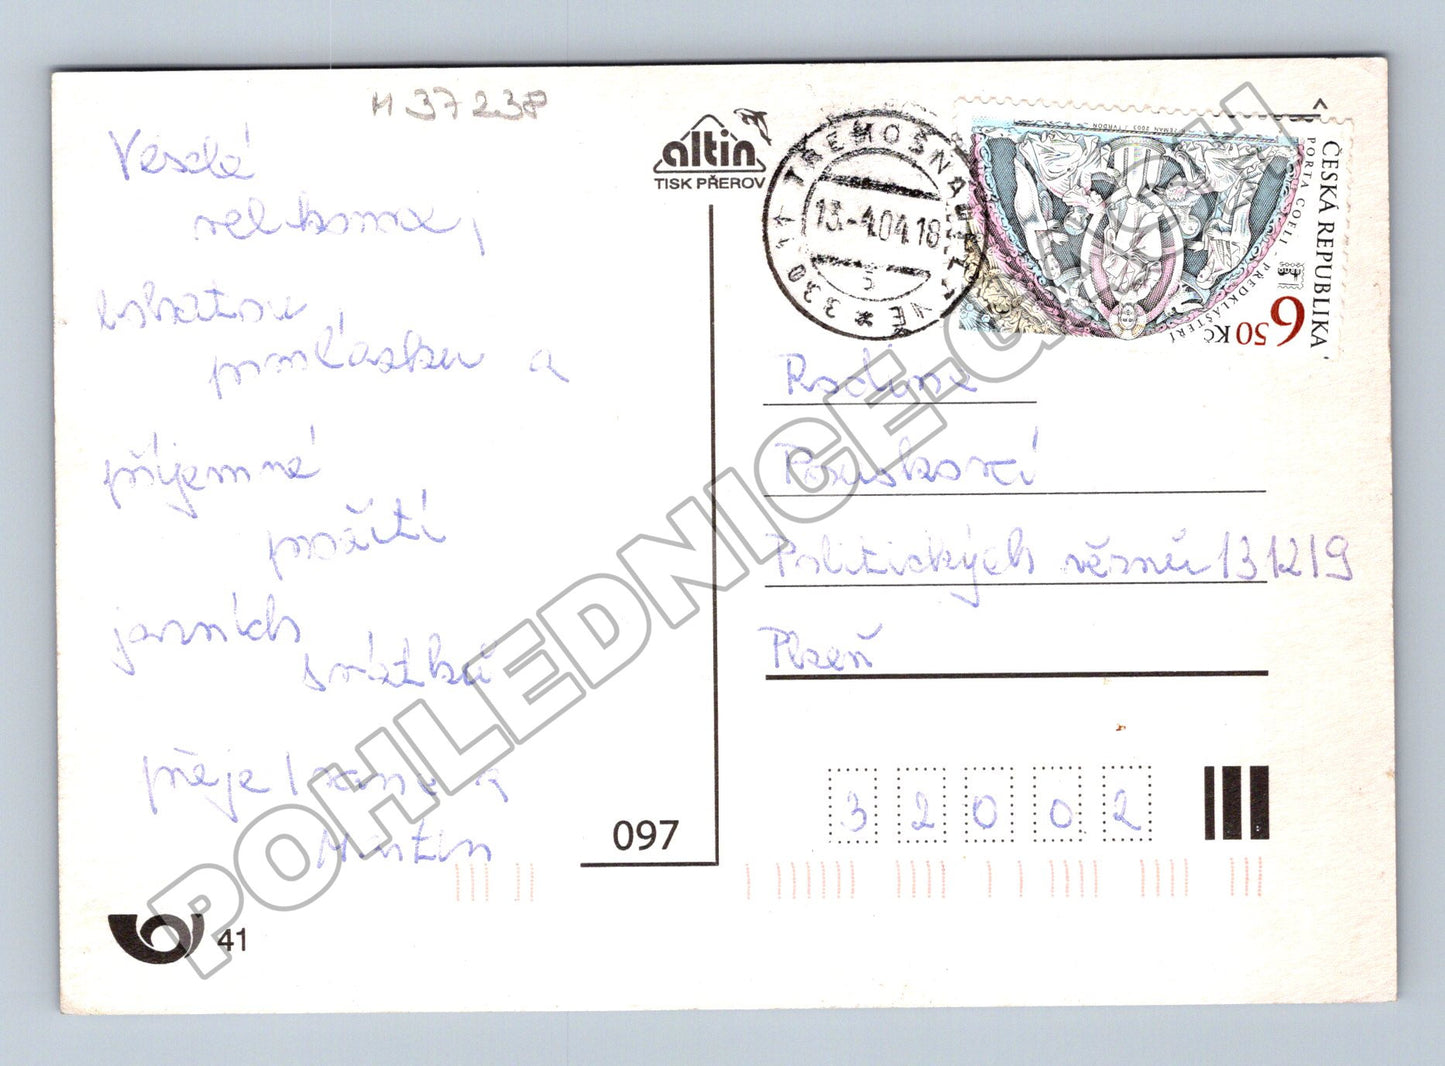 H 37238
Veselé
velikonoce,
bohatou
pomlázku a
příjemné
prožití
jarních
svátků
přeje Ivana a
Martin
41
097
altin
TISK PŘEROV
330 11 TŘEMOŠNÁ U PLZNĚ
13.-4.04.18
ČESKÁ REPUBLIKA
PORTA COELI - PŘEDKLÁŠTEŘÍ
6 50 KČ
Rodina
Politických vězňů 131219
Plzeň
3 2 0 0 2
POHLEDNICE-G.CH